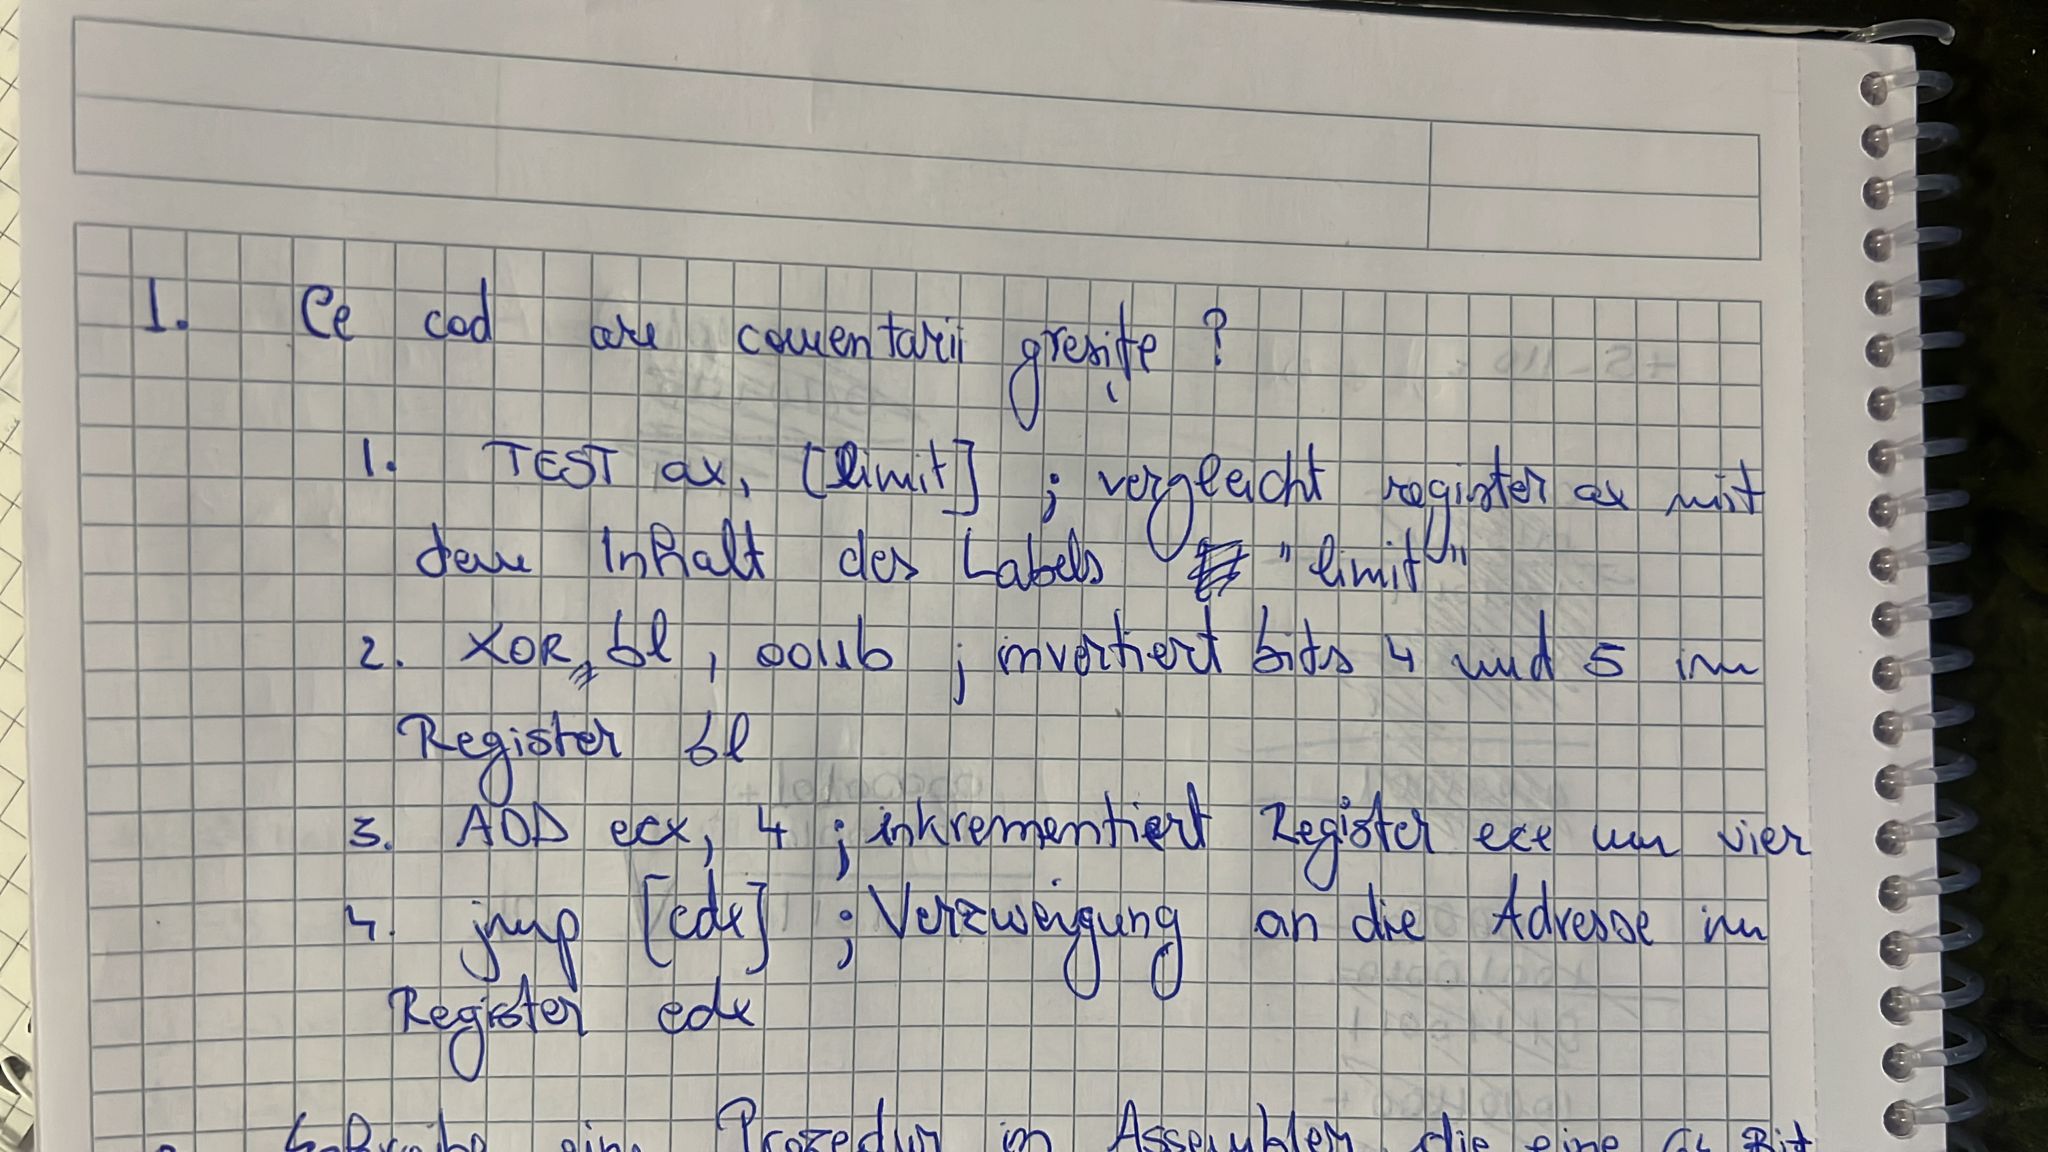 1. Ce cod are comentarii greșite ?
1. TEST ax, [limit] ; vergleicht register ax mit
dem Inhalt des Labels "limit"
2. XOR bl, 0011b ; invertiert bits 4 und 5 im
Register bl
3. ADD ecx, 4 ; inkrementiert Register ecx um vier
4. jmp [edx] ; Verzweigung an die Adresse im
Register edx
Schreibe eine Prozedur in Assembler, die eine Bit